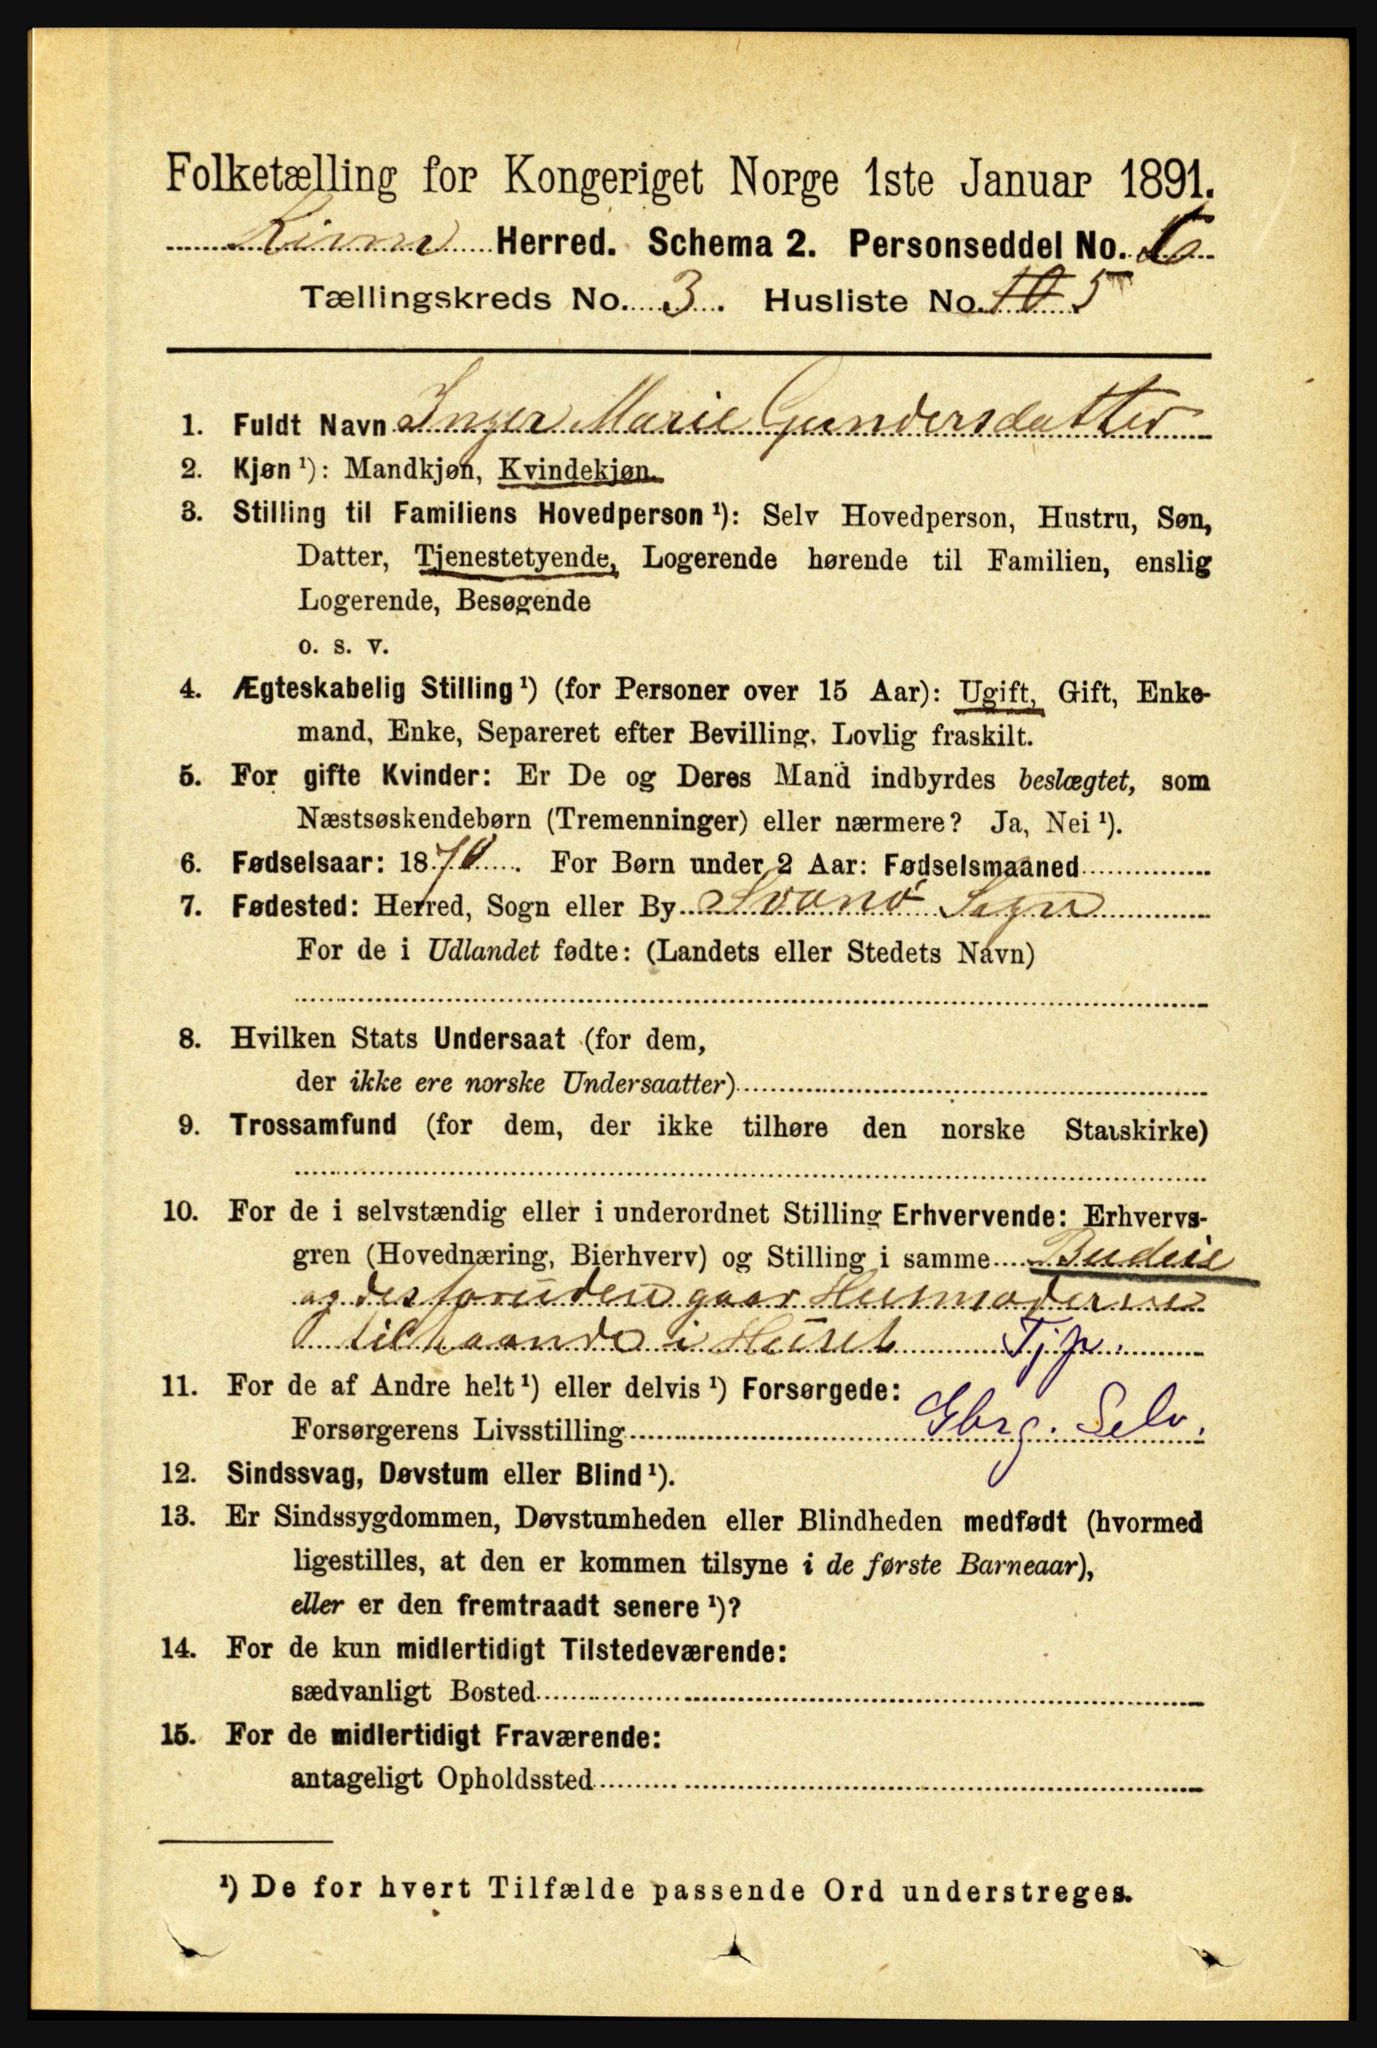 Folketælling for Kongeriget Norge 1ste Januar 1891.
Kinn Herred. Schema 2. Personseddel No. 6
Tællingskreds No. 3. Husliste No. 10 5
1. Fuldt Navn Inger Marie Gundersdatter
2. Kjøn ¹): Mandkjøn, Kvindekjøn.
3. Stilling til Familiens Hovedperson ¹): Selv Hovedperson, Hustru, Søn,
Datter, Tjenestetyende, Logerende hørende til Familien, enslig
Logerende, Besøgende
o. s. v.
4. Ægteskabelig Stilling ¹) (for Personer over 15 Aar): Ugift, Gift, Enke-
mand, Enke, Separeret efter Bevilling, Lovlig fraskilt.
5. For gifte Kvinder: Er De og Deres Mand indbyrdes beslægtet, som
Næstsøskendebørn (Tremenninger) eller nærmere? Ja, Nei ¹).
6. Fødselsaar: 1870. For Børn under 2 Aar: Fødselsmaaned
7. Fødested: Herred, Sogn eller By Svanø Sogn
For de i Udlandet fødte: (Landets eller Stedets Navn)
8. Hvilken Stats Undersaat (for dem,
der ikke ere norske Undersaatter)
9. Trossamfund (for dem, der ikke tilhøre den norske Statskirke)
10. For de i selvstændig eller i underordnet Stilling Erhvervende: Erhvervs-
gren (Hovednæring, Bierhverv) og Stilling i samme Budeie
og desforuden gaar Husmoderen
tilhaande i Huset Tjp.
11. For de af Andre helt ¹) eller delvis ¹) Forsørgede:
Forsørgerens Livsstilling Gbrg. Selv.
12. Sindssvag, Døvstum eller Blind ¹).
13. Er Sindssygdommen, Døvstumheden eller Blindheden medfødt (hvormed
ligestilles, at den er kommen tilsyne i de første Barneaar),
eller er den fremtraadt senere ¹)?
14. For de kun midlertidigt Tilstedeværende:
sædvanligt Bosted
15. For de midlertidigt Fraværende:
antageligt Opholdssted
¹) De for hvert Tilfælde passende Ord understreges.